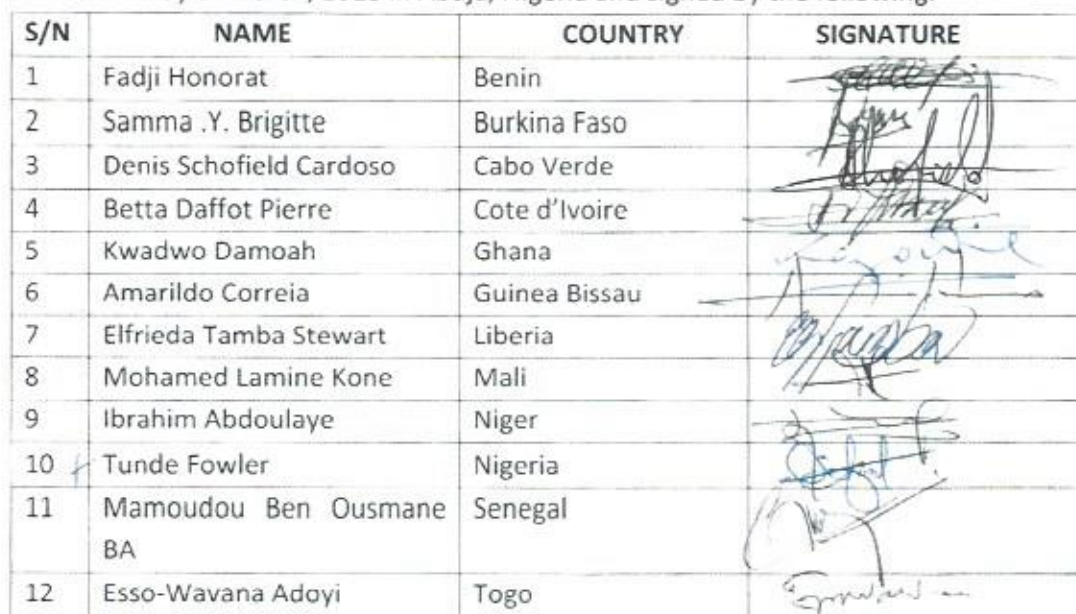 S/N NAME COUNTRY SIGNATURE
1 Fadji Honorat Benin
2 Samma .Y. Brigitte Burkina Faso
3 Denis Schofield Cardoso Cabo Verde
4 Betta Daffot Pierre Cote d'Ivoire
5 Kwadwo Damoah Ghana
6 Amarildo Correia Guinea Bissau
7 Elfrieda Tamba Stewart Liberia
8 Mohamed Lamine Kone Mali
9 Ibrahim Abdoulaye Niger
10 Tunde Fowler Nigeria
11 Mamoudou Ben Ousmane Senegal
BA
12 Esso-Wavana Adoyi Togo